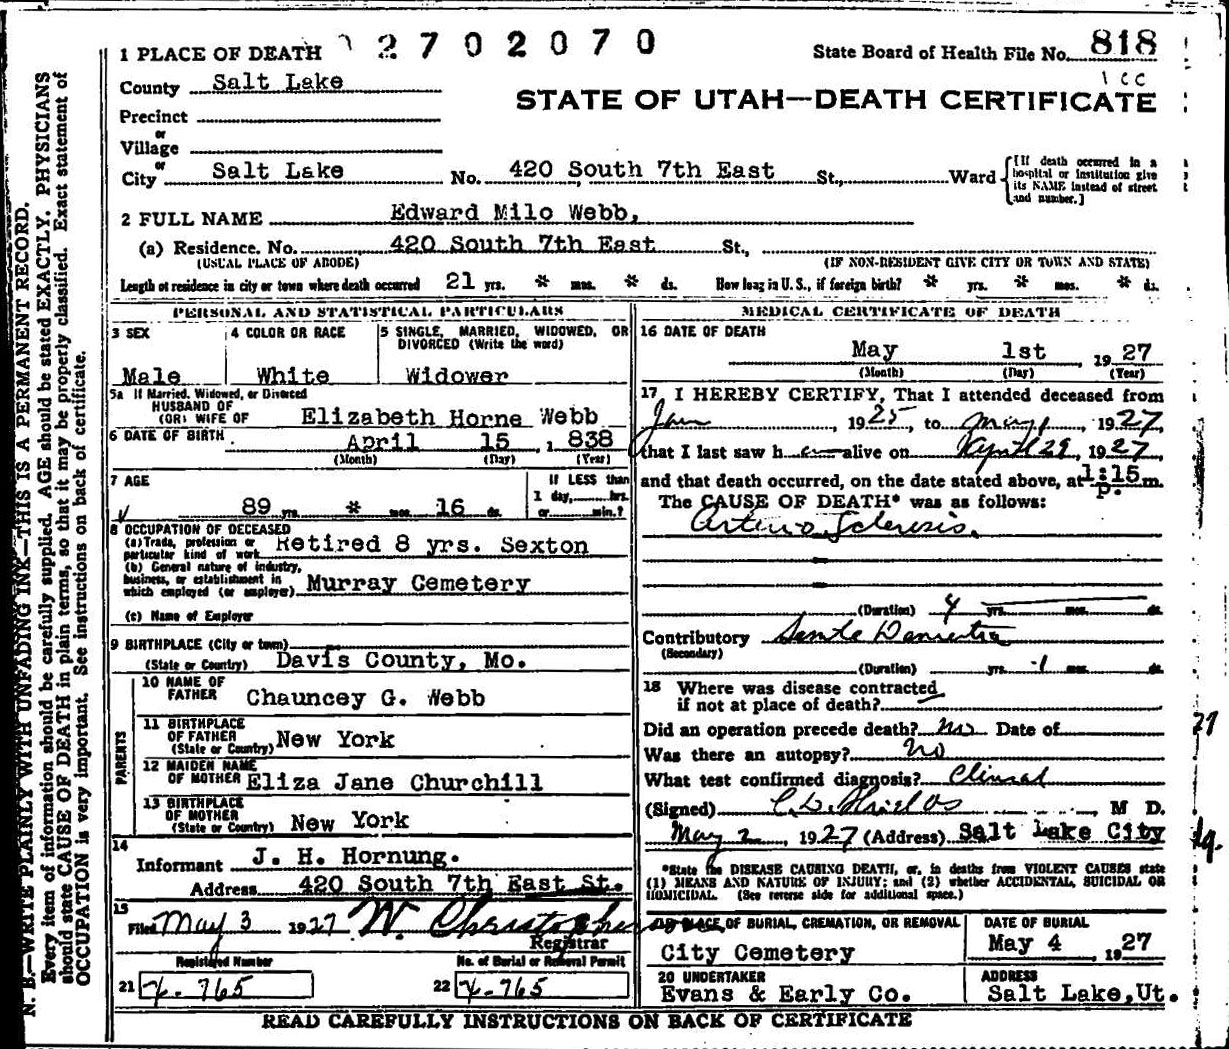 1 PLACE OF DEATH 2702070 State Board of Health File No. 818
1 CC
County Salt Lake
STATE OF UTAH—DEATH CERTIFICATE
Precinct
or
Village
or
City Salt Lake No. 420 South 7th East St., Ward
[If death occurred in a hospital or institution give its NAME instead of street and number.]
2 FULL NAME Edward Milo Webb,
(a) Residence. No. 420 South 7th East St.,
(USUAL PLACE OF ABODE) (IF NON-RESIDENT GIVE CITY OR TOWN AND STATE)
Length of residence in city or town where death occurred 21 yrs. * mos. * ds. How long in U. S., if foreign birth? * yrs. * mos. * ds.
PERSONAL AND STATISTICAL PARTICULARS
3 SEX
Male
4 COLOR OR RACE
White
5 SINGLE, MARRIED, WIDOWED, OR
DIVORCED (Write the word)
Widower
5a If Married, Widowed, or Divorced
HUSBAND OF
(OR) WIFE OF Elizabeth Horne Webb
6 DATE OF BIRTH April 15 , 1 838
(Month) (Day) (Year)
7 AGE
89 yrs. * mos. 16 ds.
If LESS than
1 day, hrs.
or min.?
8 OCCUPATION OF DECEASED
(a) Trade, profession or
particular kind of work Retired 8 yrs. Sexton
(b) General nature of industry,
business, or establishment in
which employed (or employer) Murray Cemetery
(c) Name of Employer
9 BIRTHPLACE (City or town)
(State or Country) Davis County, Mo.
PARENTS
10 NAME OF
FATHER Chauncey G. Webb
11 BIRTHPLACE
OF FATHER
(State or Country) New York
12 MAIDEN NAME
OF MOTHER Eliza Jane Churchill
13 BIRTHPLACE
OF MOTHER
(State or Country) New York
14
Informant J. H. Hornung.
Address 420 South 7th East St.
15
Filed May 3 1927 W. Christopherson
Registrar
Registered Number No. of Burial or Removal Permit
21 X-765 22 X-765
MEDICAL CERTIFICATE OF DEATH
16 DATE OF DEATH
May 1st , 19 27
(Month) (Day) (Year)
17 I HEREBY CERTIFY, That I attended deceased from
Jan , 1925, to May 1, 1927,
that I last saw h alive on April 29, 1927,
and that death occurred, on the date stated above, at 1:15 p. m.
The CAUSE OF DEATH* was as follows:
Arterio Sclerosis.
(Duration) 4 yrs. mos. ds.
Contributory Senile Dementia
(Secondary)
(Duration) yrs. 1 mos. ds.
18 Where was disease contracted
if not at place of death?
Did an operation precede death? no Date of
Was there an autopsy? no
What test confirmed diagnosis? Clinical
(Signed) C. D. Shields M D.
May 2, 1927 (Address) Salt Lake City
*State the DISEASE CAUSING DEATH, or, in deaths from VIOLENT CAUSES state
(1) MEANS AND NATURE OF INJURY; and (2) whether ACCIDENTAL, SUICIDAL OR
HOMICIDAL. (See reverse side for additional space.)
PLACE OF BURIAL, CREMATION, OR REMOVAL
City Cemetery
DATE OF BURIAL
May 4 , 1927
20 UNDERTAKER
Evans & Early Co.
ADDRESS
Salt Lake, Ut.
READ CAREFULLY INSTRUCTIONS ON BACK OF CERTIFICATE
N. B.—WRITE PLAINLY WITH UNFADING INK—THIS IS A PERMANENT RECORD.
Every item of information should be carefully supplied. AGE should be stated EXACTLY. PHYSICIANS
should state CAUSE OF DEATH in plain terms, so that it may be properly classified. Exact statement of
OCCUPATION is very important. See instructions on back of certificate.